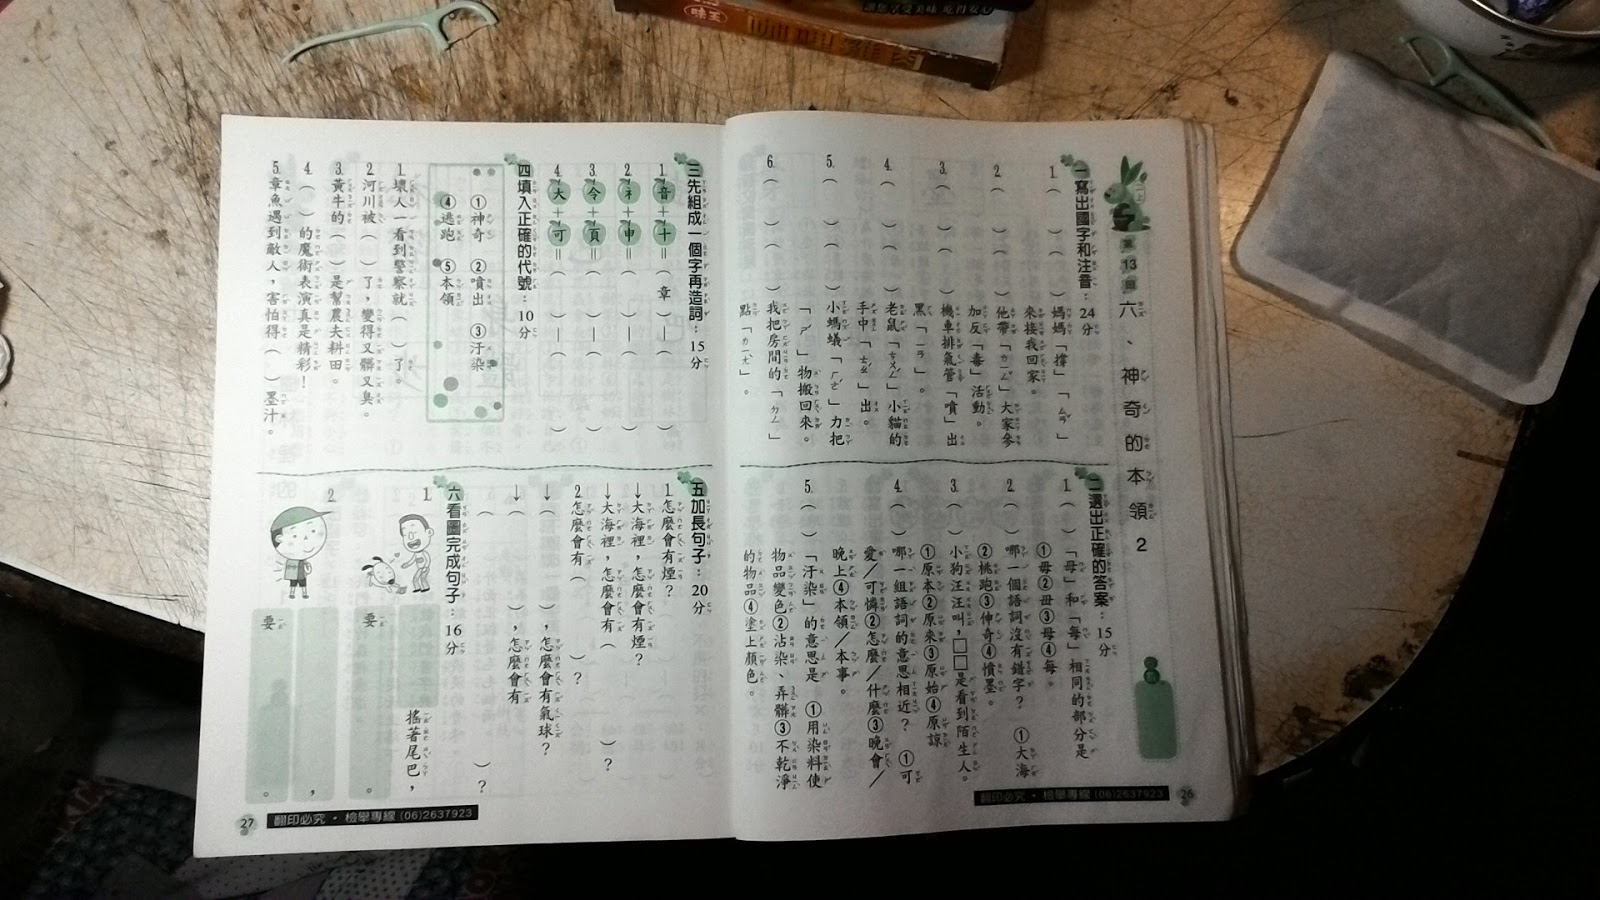 二上
第13回
六、神奇的本領 2
一 寫出國字和注音：24分
1. （ ）（ ）媽媽「撐」「ㄙㄢˇ」
來接我回家。
2. （ ）（ ）他帶「ㄌㄧㄥˇ」大家參
加反「毒」活動。
3. （ ）（ ）機車排氣管「噴」出
黑「ㄧㄢ」。
4. （ ）（ ）老鼠「ㄘㄨㄥˊ」小貓的
手中「ㄊㄠˊ」出。
5. （ ）（ ）小螞蟻「ㄏㄜˊ」力把
「ㄕˊ」物搬回來。
6. （ ）（ ）我把房間的「ㄉㄥ」
點「ㄌㄧㄤˋ」。
二 選出正確的答案：15分
1. （ ）「母」和「每」相同的部分是
①毋②毌③母④每。
2. （ ）哪一個語詞沒有錯字？ ①大海
②桃跑③伸奇④憤墨。
3. （ ）小狗汪汪叫，□□是看到陌生人。
①原本②原來③原始④原諒
4. （ ）哪一組語詞的意思相近？ ①可
愛／可憐②怎麼／什麼③晚會／
晚上④本領／本事。
5. （ ）「汙染」的意思是 ①用染料使
物品變色②沾染、弄髒③不乾淨
的物品④塗上顏色。
翻印必究・檢舉專線(06)2637923
26
三 先組成一個字再造詞：15分
1. 音＋十＝（ 章 ）—（ ）
2. 礻＋申＝（ ）—（ ）
3. 令＋頁＝（ ）—（ ）
4. 大＋可＝（ ）—（ ）
四 填入正確的代號：10分
①神奇 ②噴出 ③汙染
④逃跑 ⑤本領
1. 壞人一看到警察就（ ）了。
2. 河川被（ ）了，變得又髒又臭。
3. 黃牛的（ ）是幫農夫耕田。
4. （ ）的魔術表演真是精彩！
5. 章魚遇到敵人，害怕得（ ）墨汁。
五 加長句子：20分
1. 怎麼會有煙？
→大海裡，怎麼會有煙？
→大海裡，怎麼會有（ ）？
2. 怎麼會有（ ）？
→（ ），怎麼會有氣球？
→（ ），怎麼會有
（ ）？
六 看圖完成句子：16分
1. 搖著尾巴，
要 。
2. ，
要 。
翻印必究・檢舉專線(06)2637923
27
味王